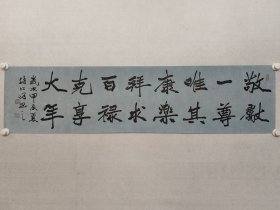 敬獻
一尊
唯其
康樂
拜求
百祿
克享
大年
歲次甲辰夏